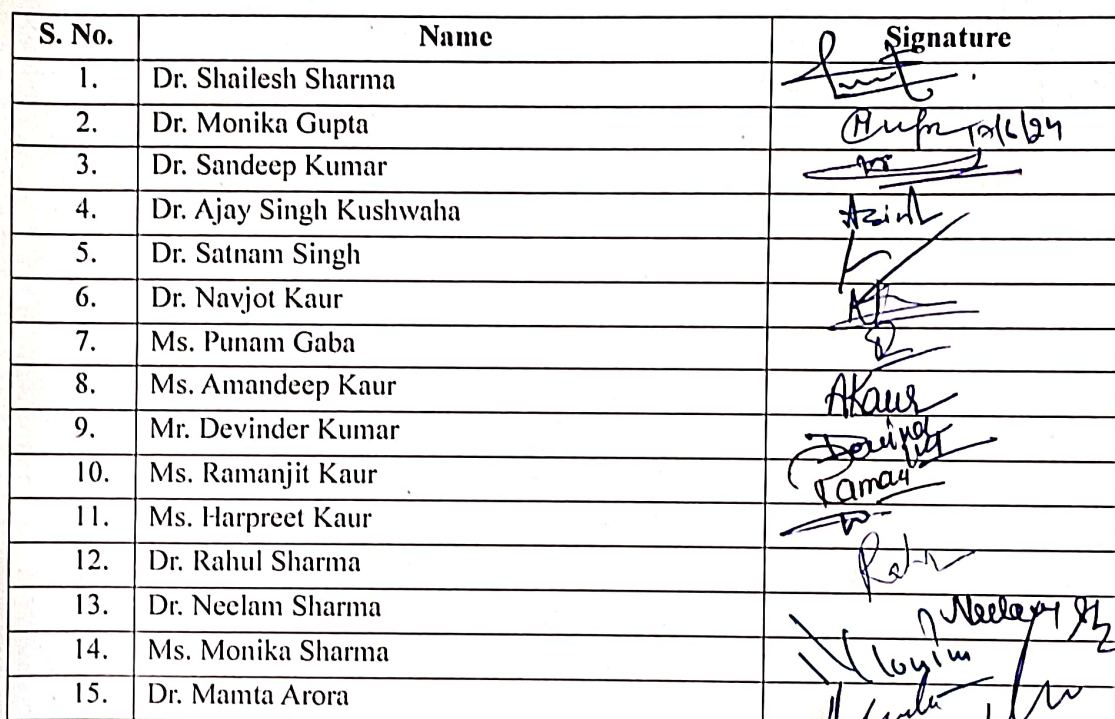 S. No. Name Signature
1. Dr. Shailesh Sharma
2. Dr. Monika Gupta
3. Dr. Sandeep Kumar
4. Dr. Ajay Singh Kushwaha
5. Dr. Satnam Singh
6. Dr. Navjot Kaur
7. Ms. Punam Gaba
8. Ms. Amandeep Kaur AKaur
9. Mr. Devinder Kumar
10. Ms. Ramanjit Kaur
11. Ms. Harpreet Kaur
12. Dr. Rahul Sharma
13. Dr. Neelam Sharma Neelam
14. Ms. Monika Sharma
15. Dr. Mamta Arora